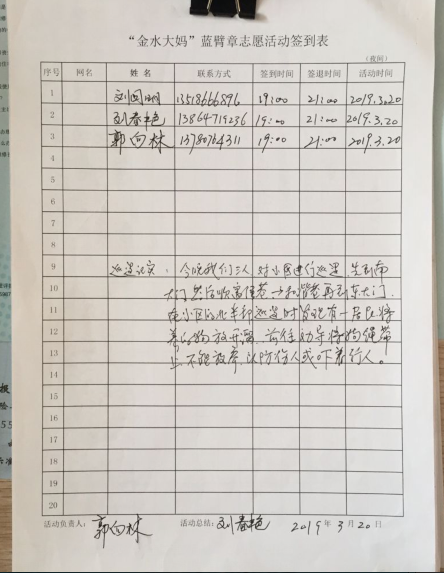 “金水大妈”蓝臂章志愿活动签到表
（夜间）
序号 网名 姓名 联系方式 签到时间 签退时间 活动时间
1 13518666896 19:00 21:00 2019.3.20
2 刘春艳 13864719236 19:00 21:00 2019.3.20
3 郭向林 13780764311 19:00 21:00 2019.3.20
4
5
6
7
8
9 巡逻记实：今晚我们三人对小区进行巡逻，先到南
10 大门然后顺 再到东大门，
11 在小区的北 巡逻时发现有一居民将
12 养的狗放开溜，前往劝导将狗绳带
13 上，不能放养，以防伤人或吓着行人。
14
15
16
17
18
19
20
活动负责人：郭向林 活动总结：刘春艳 2019年3月20日